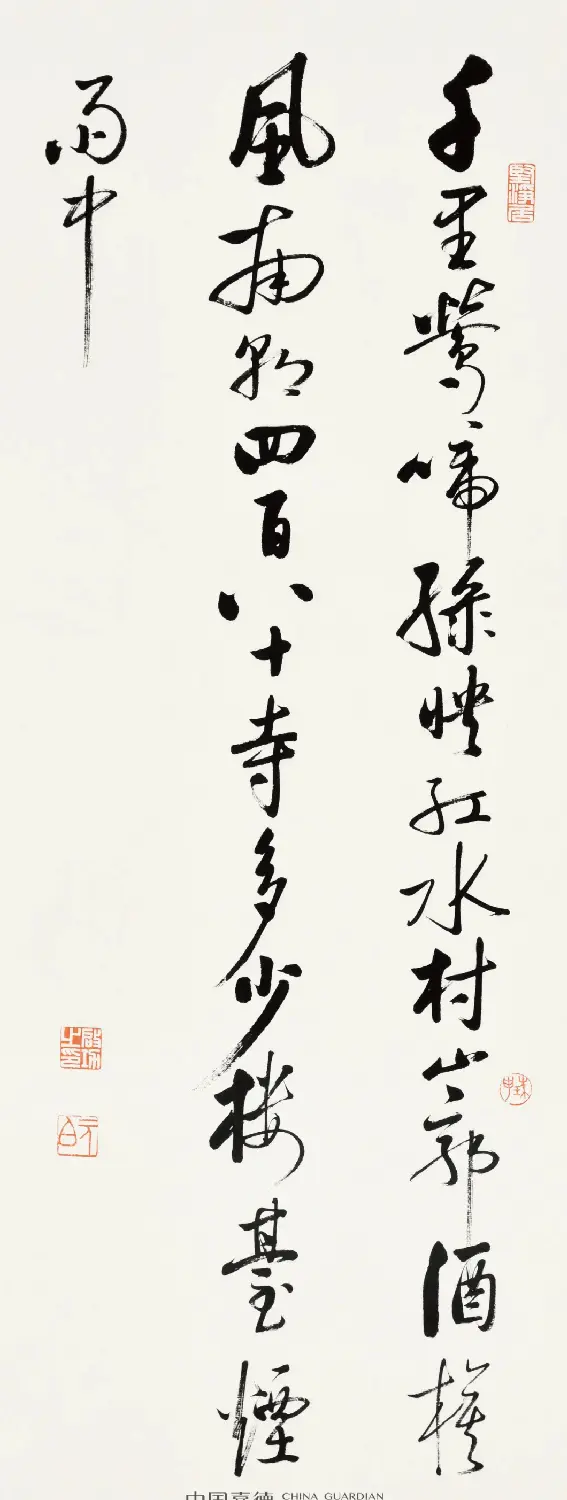 千里鶯啼綠映紅水村山郭酒旗
風南朝四百八十寺多少樓臺煙
雨中
堅淨居
珠申
啟功之印
元白
中国嘉德 CHINA GUARDIAN